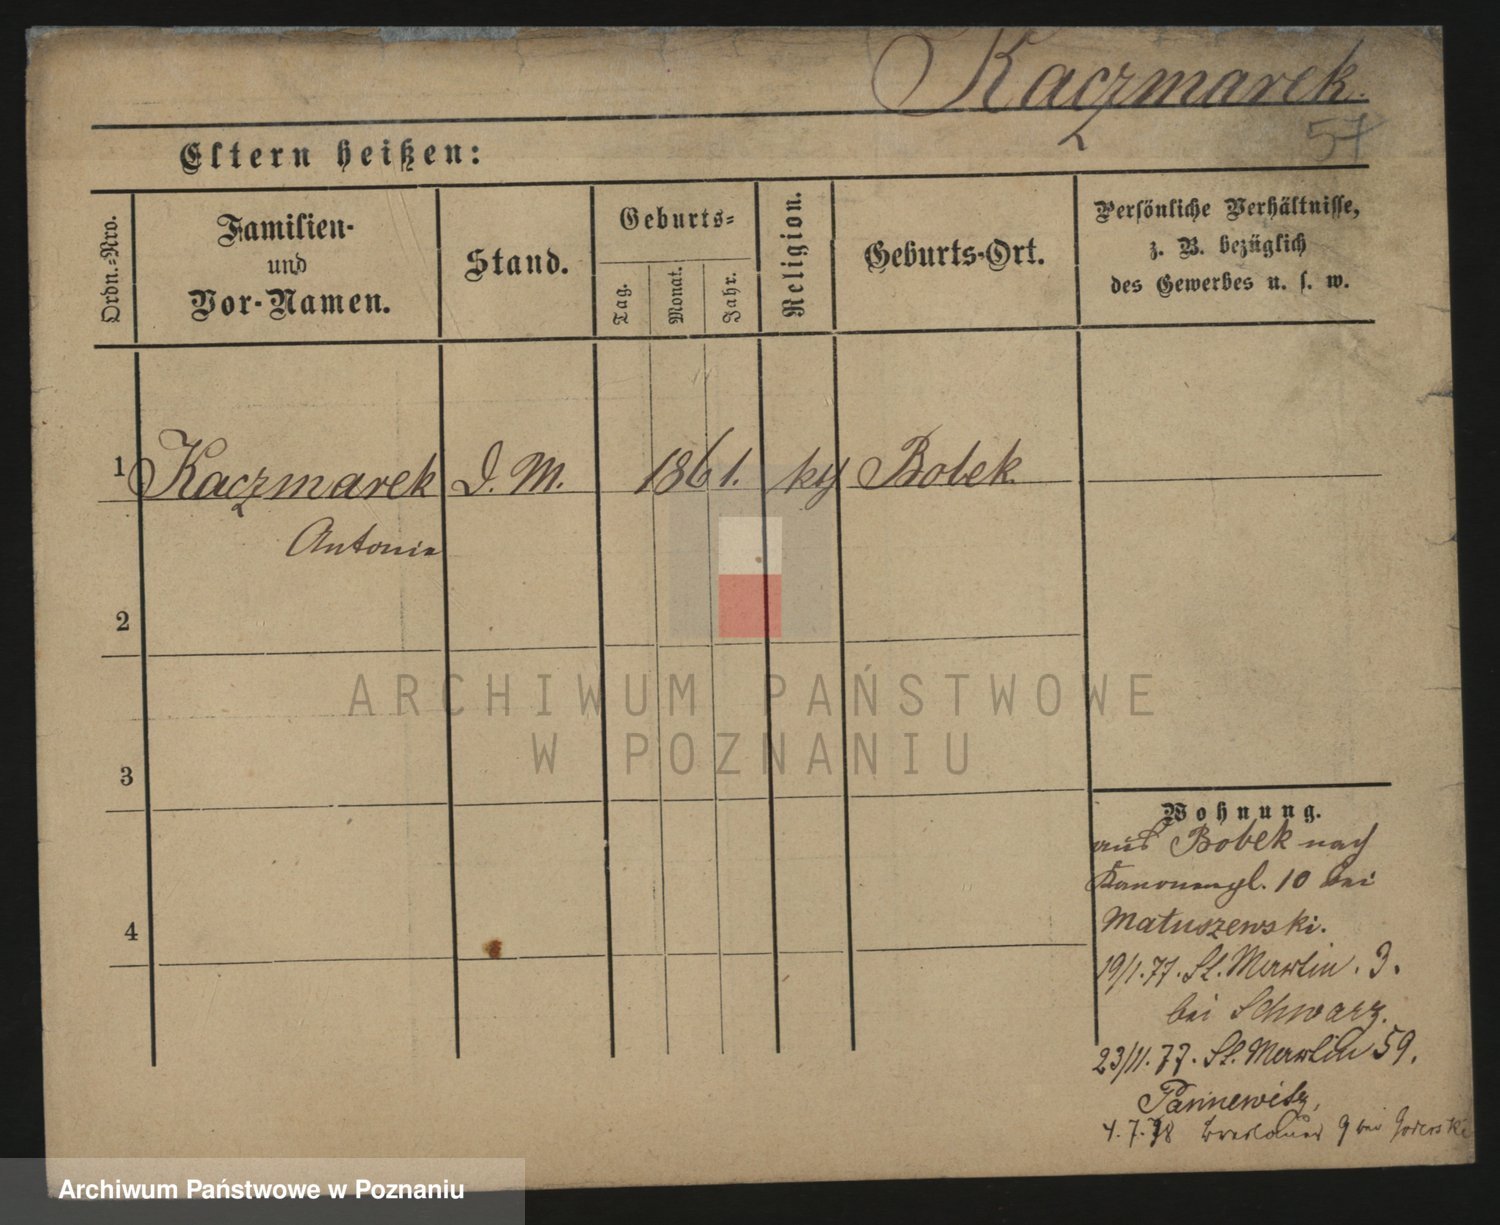 Kaczmarek.
57
Eltern heißen:
Ordn.-Nro.
Familien-
und
Vor-Namen.
Stand.
Geburts-
Tag.
Monat.
Jahr.
Religion.
Geburts-Ort.
Persönliche Verhältnisse,
z. B. bezüglich
des Gewerbes u. s. w.
1 Kaczmarek D. M. 1861. kth Bobek
Antonie
2
3
4
Wohnung.
aus Bobek nach
Kanonenpl. 10 bei
Matuszewski.
19/1.77. St. Martin. 3.
bei Schwarz.
23/11.77. St. Martin 59.
Pannewitz,
4.7.78 Breslauer 9 bei
ARCHIWUM PAŃSTWOWE
W POZNANIU
Archiwum Państwowe w Poznaniu